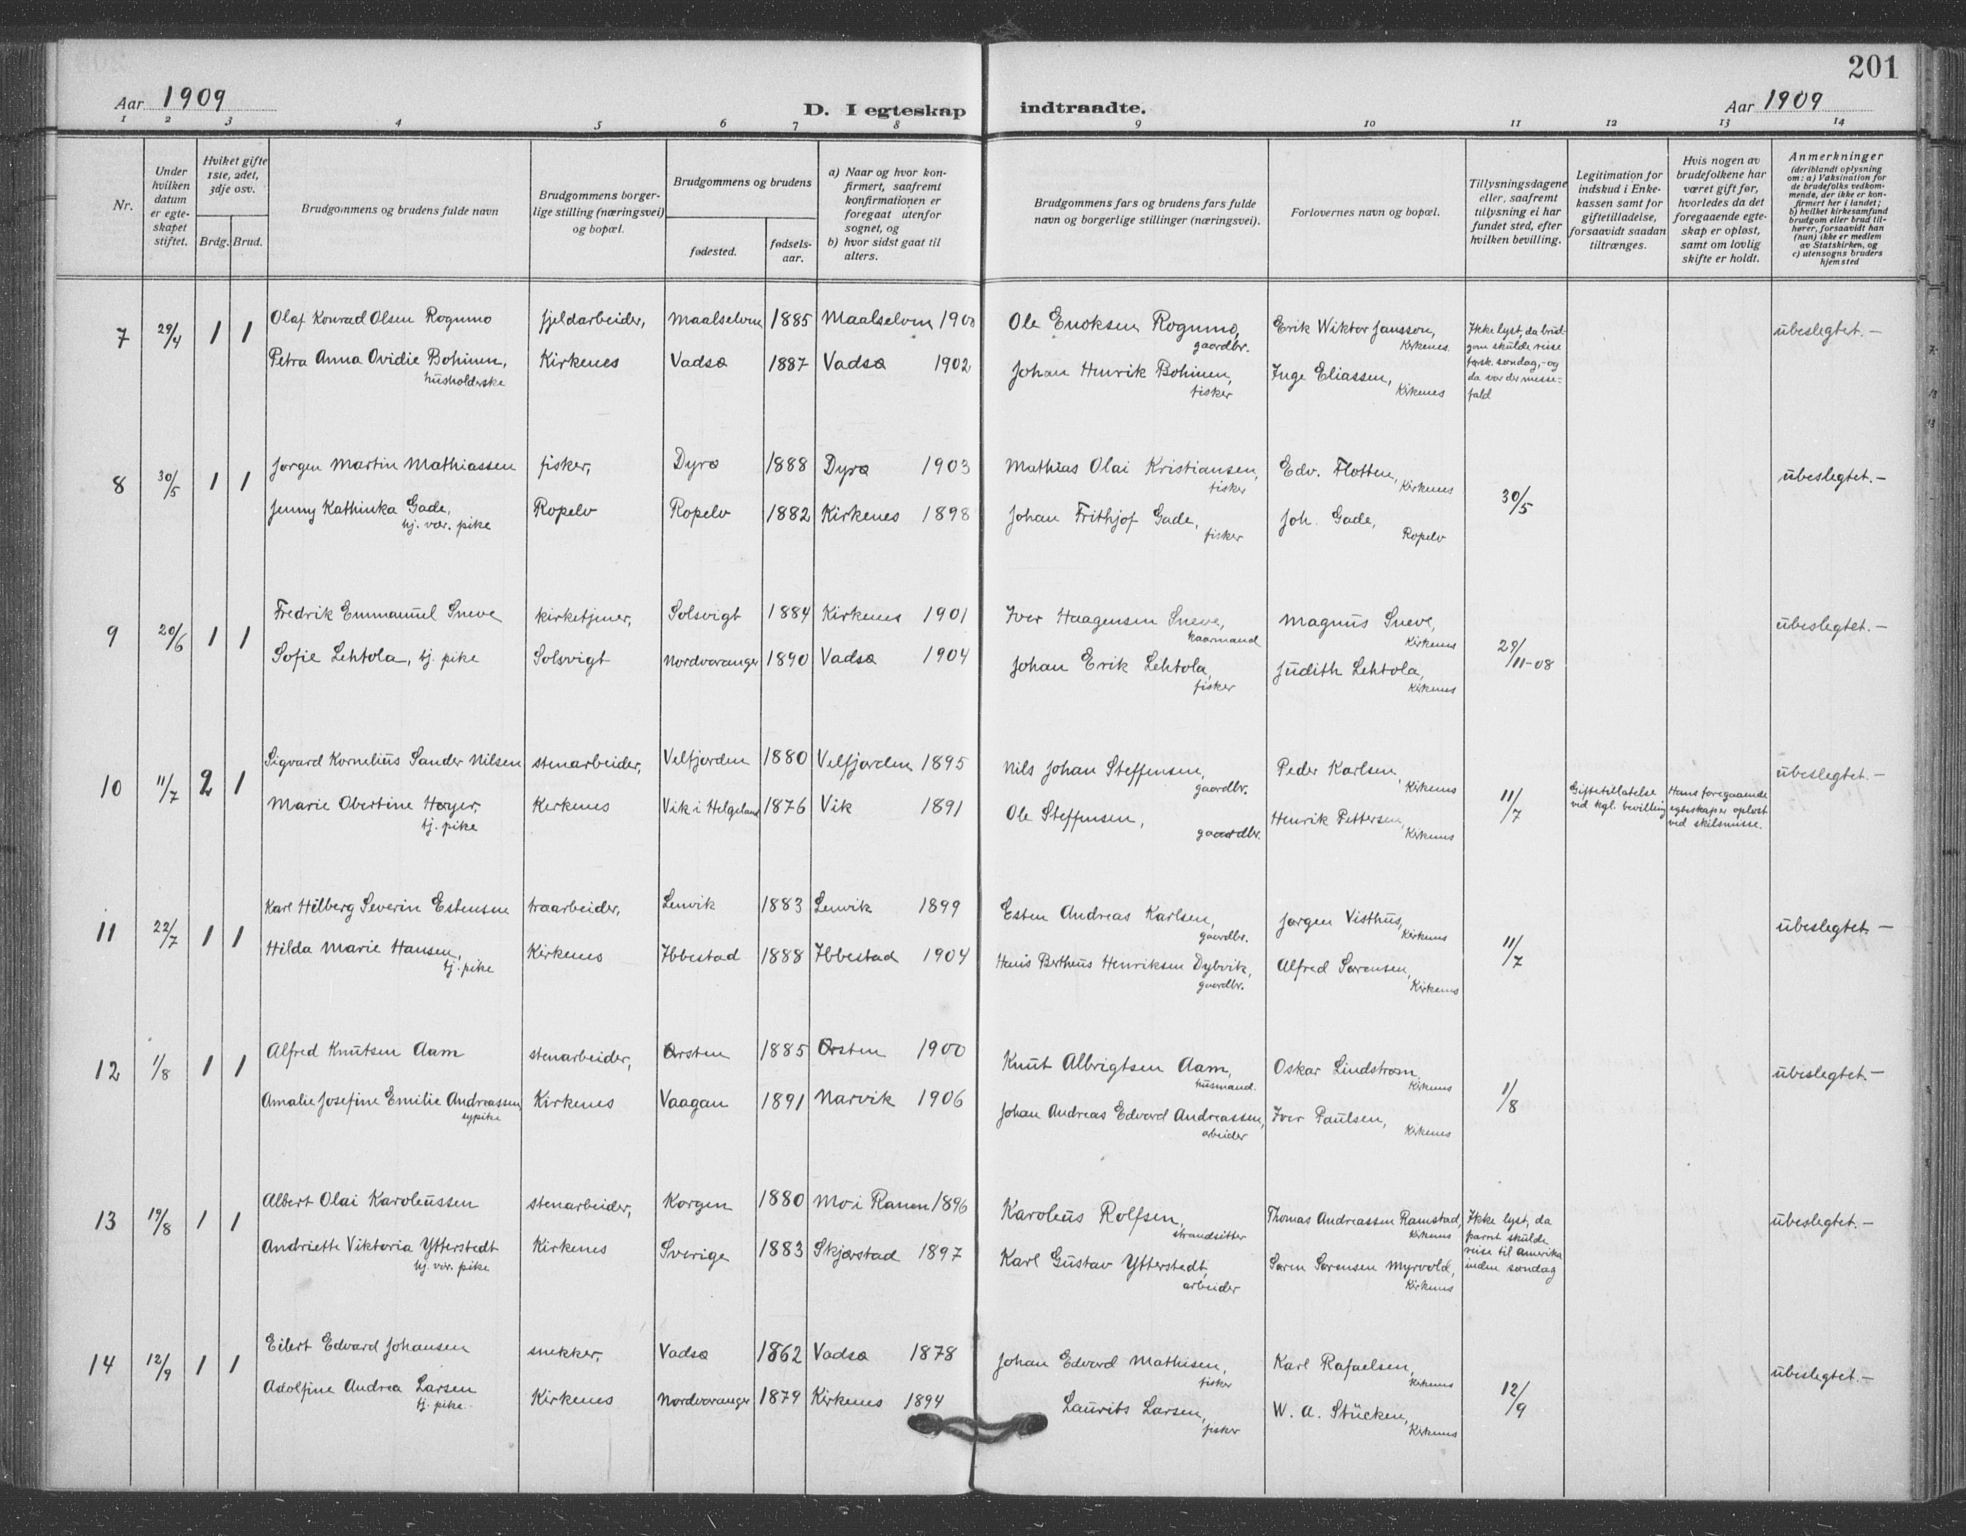 201
Aar 1909
D. I egteskap indtraadte.
Aar 1909
1 2 3 4 5 6 7 8 9 10 11 12 13 14
Nr.
Under hvilken datum er egteskapet stiftet.
Hviket gifte 1ste, 2det, 3dje osv.
Brdg. Brud.
Brudgommens og brudens fulde navn
Brudgommens borgerlige stilling (næringsvei) og bopæl.
Brudgommens og brudens
fødested.
fødselsaar.
a) Naar og hvor konfirmert, saafremt konfirmationen er foregaat utenfor sognet, og
b) hvor sidst gaat til alters.
Brudgommens fars og brudens fars fulde navn og borgerlige stillinger (næringsvei).
Forlovernes navn og bopæl.
Tillysningsdagene eller, saafremt tillysning ei har fundet sted, efter hvilken bevilling.
Legitimation for indskud i Enkekassen samt for giftetilladelse, forsaavidt saadan tiltrænges.
Hvis nogen av brudefolkene har været gift før, hvorledes da det foregaaende egteskap er opløst, samt om lovlig skifte er holdt.
Anmerkninger (deriblandt oplysning om: a) Vaksination for de brudefolks vedkommende, der ikke er konfirmert her i landet; b) hvilket kirkesamfund brudgom eller brud tilhører, forsaavidt han (hun) ikke er medlem av Statskirken, og c) utensogns bruders hjemsted
7 29/4 1 1 Olaf Konrad Olsen Rognmo fjeldarbeider, Maalselven 1885 Maalselven 1900 Ole Enoksen Rognmo, gaardbr. Erik Wiktor Jansson, Kirkenes. Ikke lyst, da brudgom skulde reise førsk. søndag, - og da var der messefald ubeslegtet. -
Petra Anna Ovidie Bohinen, husholderske Kirkenes Vadsø 1887 Vadsø 1902 Johan Henrik Bohinen, fisker Inge Eliassen, Kirkenes
8 30/5 1 1 Jørgen Martin Mathiassen fisker, Dyrø 1888 Dyrø 1903 Mathias Olai Kristiansen, fisker Edv. Flotten, Kirkenes 30/5 ubeslegtet. -
Jenny Kathinka Gade, hj. vær. pike Ropelv Ropelv 1882 Kirkenes 1898 Johan Frithjof Gade, fisker Joh. Gade, Ropelv
9 20/6 1 1 Fredrik Emmanuel Sneve kirketjener, Solsvigt 1884 Kirkenes 1901 Iver Haagensen Sneve, kaarmand Magnus Sneve, Kirkenes 29/11-08 ubeslegtet. -
Sofie Lehtola, tj. pike Solsvigt Nordvaranger 1890 Vadsø 1904 Johan Erik Lehtola, fisker Judith Lehtola, Kirkenes
10 11/7 2 1 Sigvard Kornelius Sander Nilsen stenarbeider, Velfjorden 1880 Velfjorden 1895 Nils Johan Steffensen, gaardbr. Peder Karlsen, Kirkenes 11/7 Giftetillatelse ved kgl. bevilling Hans foregaaende egteskap er opløst ved skilsmisse. ubeslegtet. -
Marie Obertine Høyer, tj. pike Kirkenes Vik i Helgeland 1876 Vik 1891 Ole Steffensen, gaardbr. Henrik Pettersen, Kirkenes
11 22/7 1 1 Karl Hilberg Severin Estensen traarbeider, Lenvik 1883 Lenvik 1899 Esten Andreas Karlsen, gaardbr. Jørgen Visthus, Kirkenes 11/7 ubeslegtet. -
Hilda Marie Hansen, tj. pike Kirkenes Ibbestad 1888 Ibbestad 1904 Hans Berthus Henriksen Dybvik, gaardbr. Alfred Sørensen, Kirkenes
12 1/8 1 1 Alfred Knutsen Aam stenarbeider, Ørsten 1885 Ørsten 1900 Knut Albrigtsen Aam, husmand. Oskar Lindstrøm, Kirkenes 1/8 ubeslegtet. -
Amalie Josefine Emilie Andreassen, sypike Kirkenes Vaagan 1891 Narvik 1906 Johan Andreas Edvard Andreassen, arbeider Iver Paulsen, Kirkenes
13 19/8 1 1 Albert Olai Karoliussen stenarbeider, Korgen 1880 Mo i Ranen 1896 Karolius Rolfsen, strandsitter Thomas Andreassen Ramstad, Kirkenes Ikke lyst, da parret skulde reise til Amerika inden søndag ubeslegtet. -
Andriette Viktoria Ytterstedt hj. vær. pike Kirkenes Sverige 1883 Skjerstad 1897 Karl Gustav Ytterstedt, arbeider Søren Sørensen Myrvold, Kirkenes
14 12/9 1 1 Eilert Edvard Johansen snekker, Vadsø 1862 Vadsø 1878 Johan Edvard Mathisen, fisker Karl Rafaelsen, Kirkenes 12/9 ubeslegtet. -
Adolfine Andrea Larsen tj. pike. Kirkenes Nordvaranger 1879 Kirkenes 1894 Laurits Larsen, fisker W. A. Stücken, Kirkenes